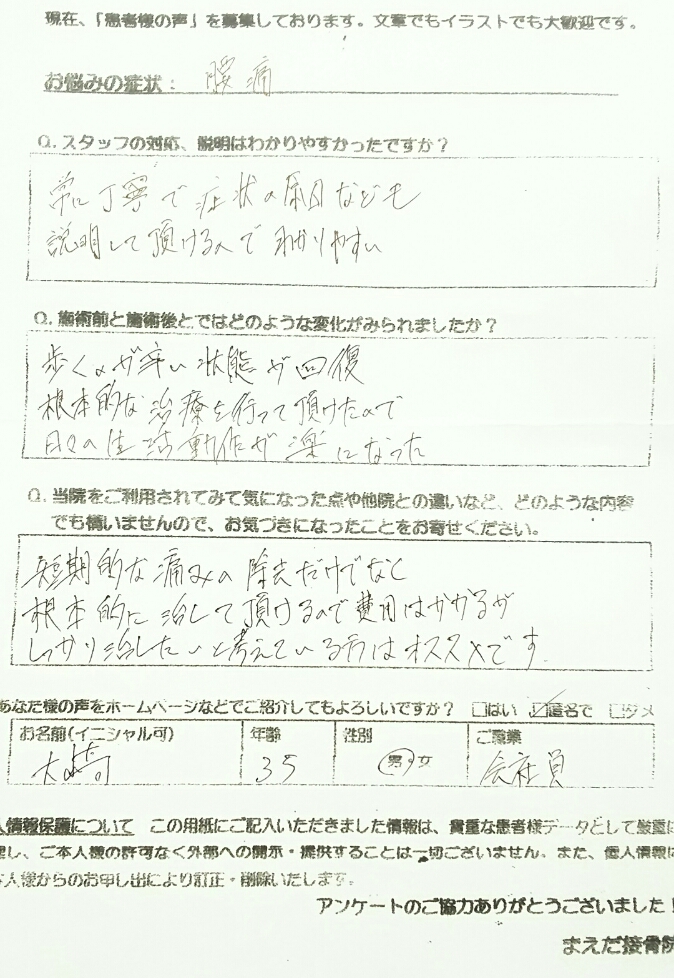 現在、「患者様の声」を募集しております。文章でもイラストでも大歓迎です。
お悩みの症状： 腰痛
Q. スタッフの対応、説明はわかりやすかったですか？
常に丁寧で症状の原因なども
説明して頂けるので わかりやすい
Q. 施術前と施術後とではどのような変化がみられましたか？
歩くのが辛い状態が回復
根本的な治療を行って頂けたので
日々の生活動作が楽になった
Q. 当院をご利用されてみて気になった点や他院との違いなど、どのような内容
でも構いませんので、お気づきになったことをお寄せください。
短期的な痛みの除去だけでなく
根本的に治して頂けるので費用はかかるが
しっかり治したいと考えている方はオススメです
あなた様の声をホームページなどでご紹介してもよろしいですか？ □はい ☑匿名で □ダメ
お名前(イニシャル可) 年齢 性別 ご職業
大崎 35 男・女 会社員
人情報保護について この用紙にご記入いただきました情報は、貴重な患者様データとして厳重に
理し、ご本人様の許可なく外部への開示・提供することは一切ございません。また、個人情報は
本人様からのお申し出により訂正・削除いたします。
アンケートのご協力ありがとうございました！
まえだ接骨院